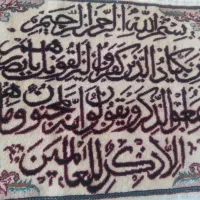 بسم الله الرحمن الرحيم
وان يكاد الذين كفروا ليزلقونك بابصارهم
لما سمعوا الذكر ويقولون انه لمجنون وما هو
الا ذكر للعالمين